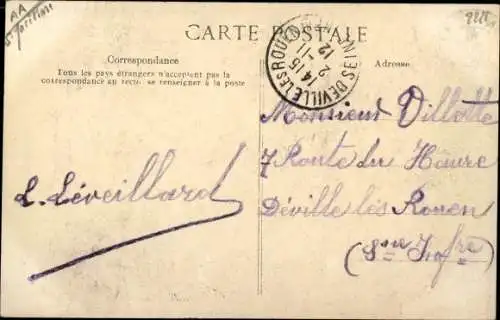 AA
CARTE POSTALE
Correspondance
Tous les pays étrangers n'acceptent pas la
correspondance au recto. se renseigner à la poste
Adresse
DEVILLE LES ROUEN
14 15
2 - 11
12
L. Léveillard
Monsieur Villatte
7 Route du Havre
Déville lès Rouen
(Sne Infre)